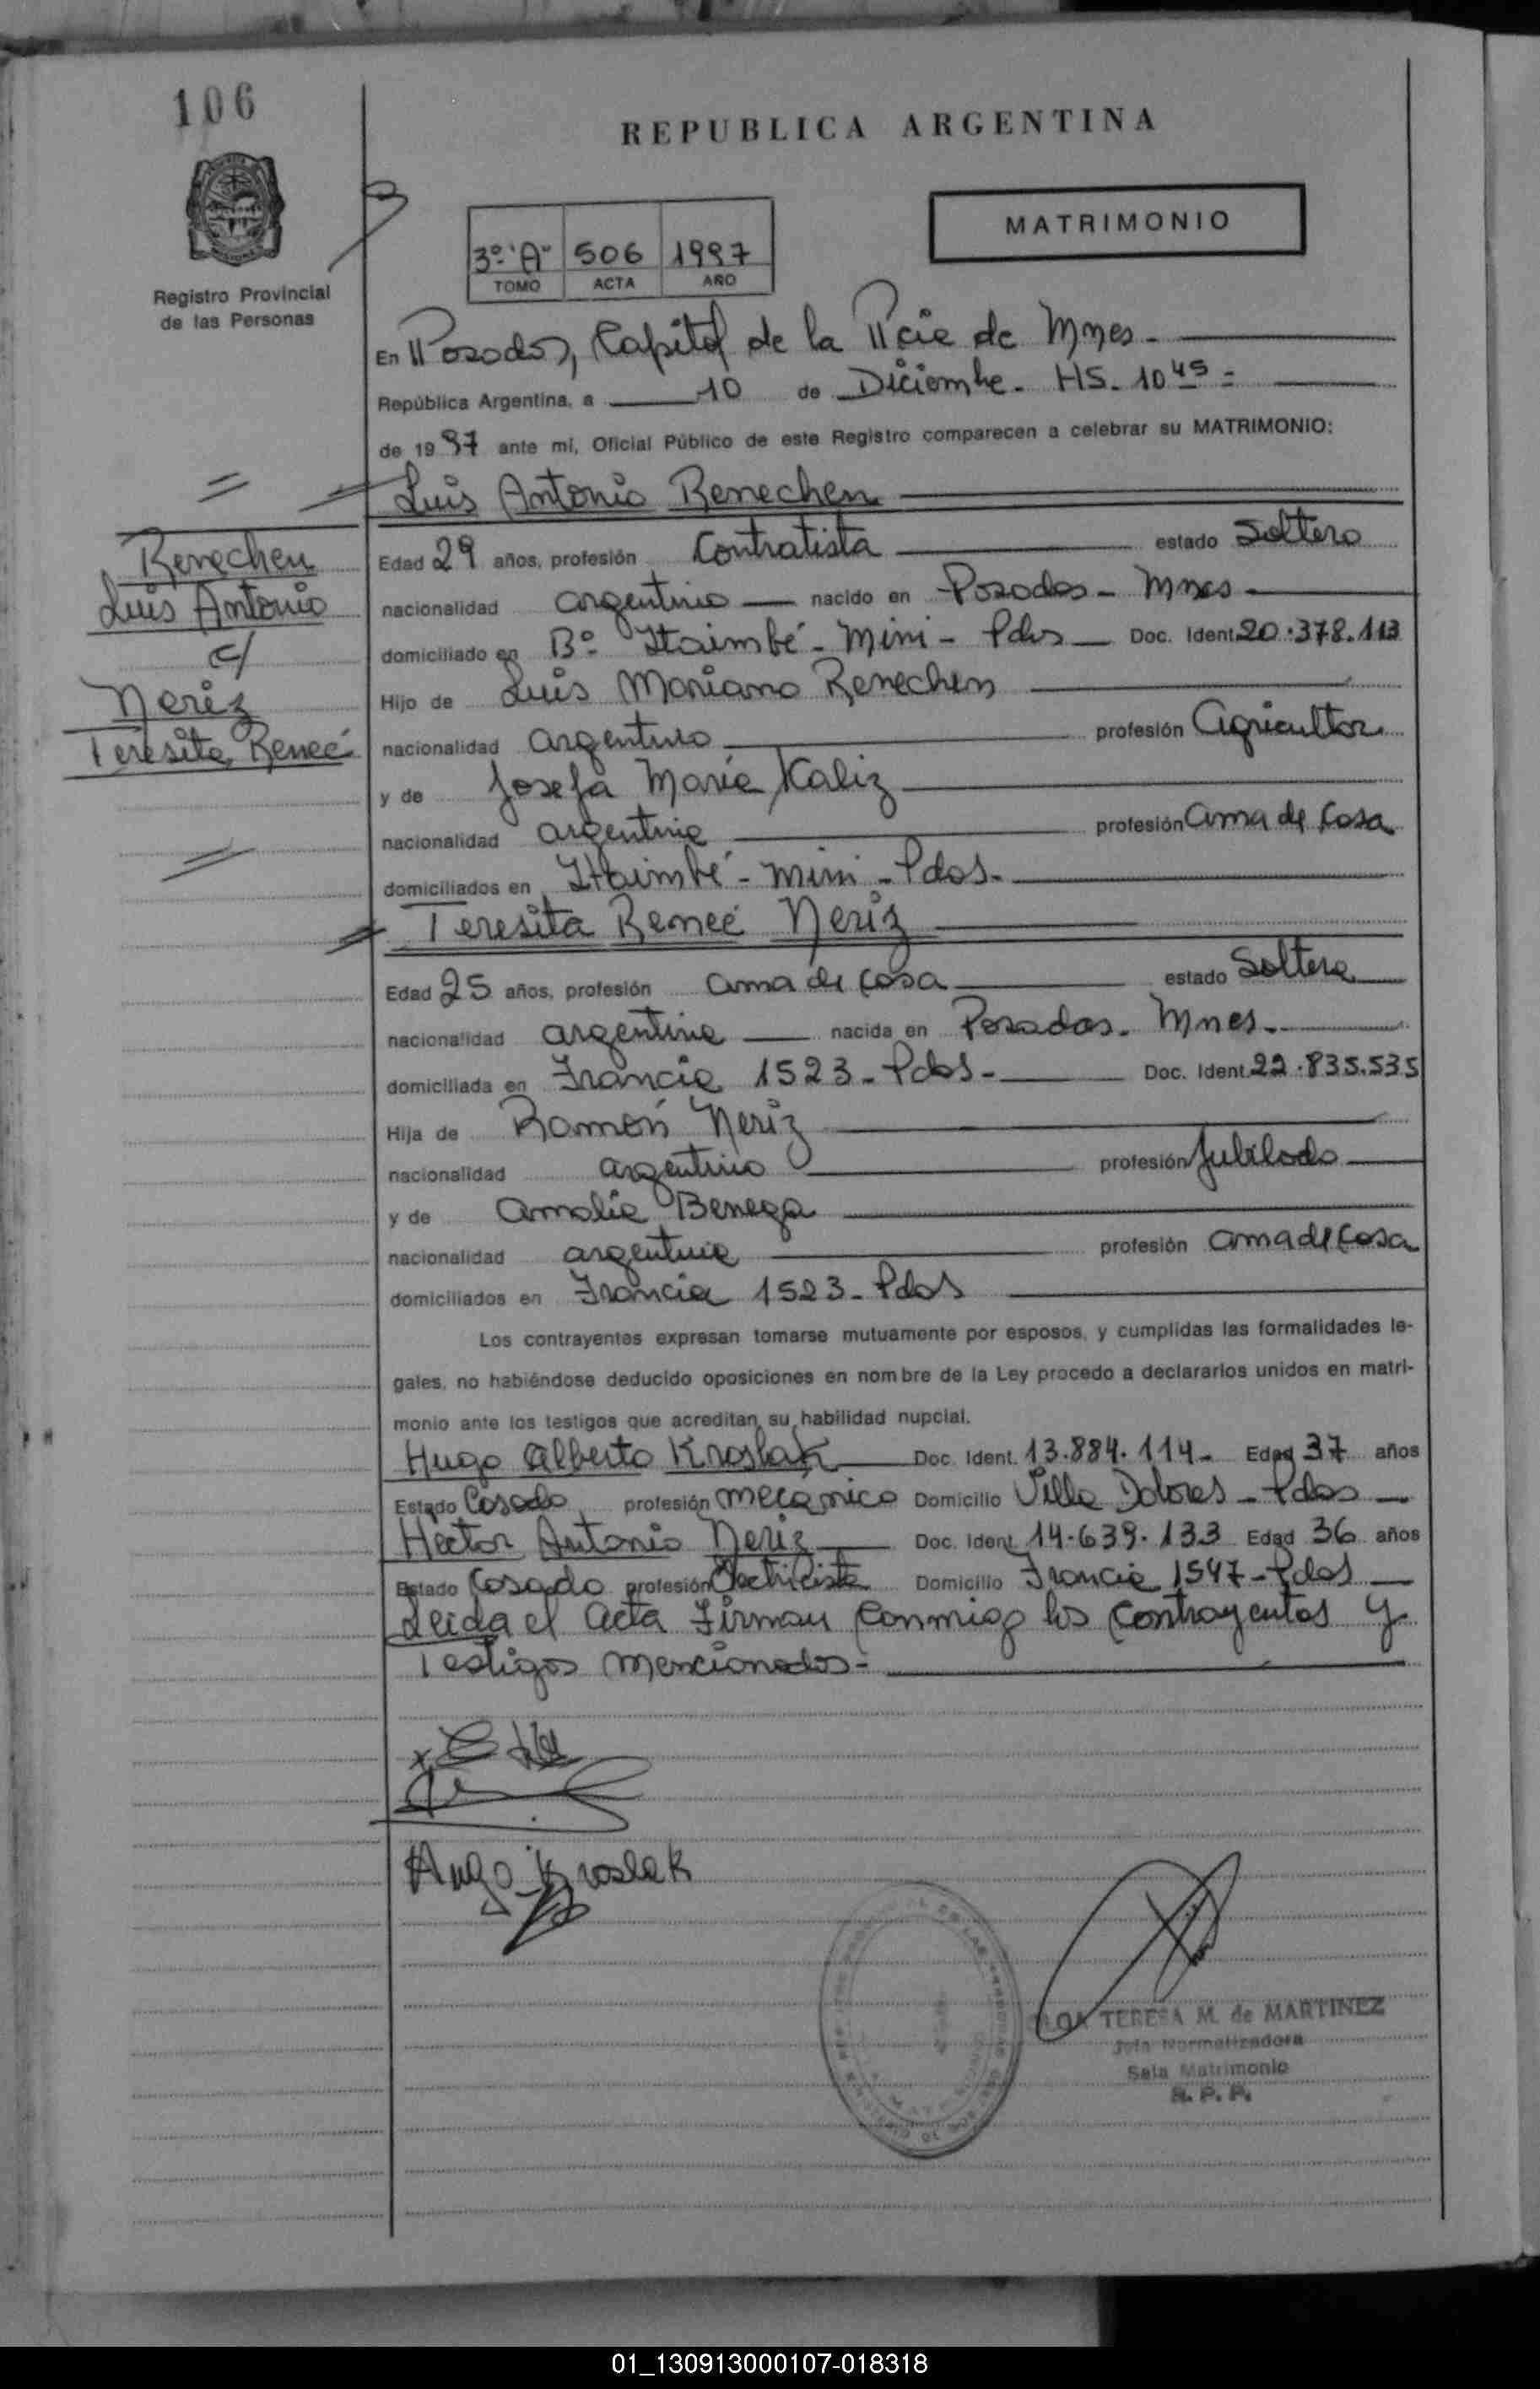 106
REPUBLICA ARGENTINA
MATRIMONIO
3º "A" 506 1997
TOMO ACTA AÑO
Registro Provincial
de las Personas
En Posadas, Capital de la Pcie de Mnes.
República Argentina, a 10 de Diciembre. HS. 10 45 =
de 1997 ante mi, Oficial Público de este Registro comparecen a celebrar su MATRIMONIO:
Luis Antonio Renechen
Renechen
Luis Antonio
c/
Neriz
Teresita Reneé
Edad 29 años, profesión Contratista estado Soltero
nacionalidad argentino nacido en Posadas - Mnes
domiciliado en Bº Itaimbé - Mini - Pdas Doc. Ident. 20.378.113
Hijo de Luis Mariano Renechen
nacionalidad argentino profesión agricultor
y de Josefa María Kaliz
nacionalidad argentina profesión ama de casa
domiciliados en Itaimbé - Mini - Pdas.
Teresita Reneé Neriz
Edad 25 años, profesión ama de casa estado Soltera
nacionalidad argentina nacida en Posadas. Mnes.
domiciliada en Francia 1523 - Pdas - Doc. Ident. 22.835.535
Hija de Ramón Neriz
nacionalidad argentino profesión Jubilado
y de Amalia Benega
nacionalidad argentina profesión ama de casa
domiciliados en Francia 1523 - Pdas
Los contrayentes expresan tomarse mutuamente por esposos, y cumplidas las formalidades le-
gales, no habiéndose deducido oposiciones en nombre de la Ley procedo a declararlos unidos en matri-
monio ante los testigos que acreditan su habilidad nupcial.
Hugo Alberto Kroslak Doc. Ident. 13.884.114 - Edad 37 años
Estado Casado profesión mecánico Domicilio Villa Dolores - Pdas
Hector Antonio Neriz Doc. Ident. 14.639.133 Edad 36 años
Estado Casado profesión Electricista Domicilio Francia 1547 - Pdas
Leida el Acta Firman Conmigo los Contrayentes y
Testigos mencionados -
Hugo Kroslak
TERESA M. de MARTINEZ
Jefa Normalizadora
Sala Matrimonio
R. P. P.
01_130913000107-018318